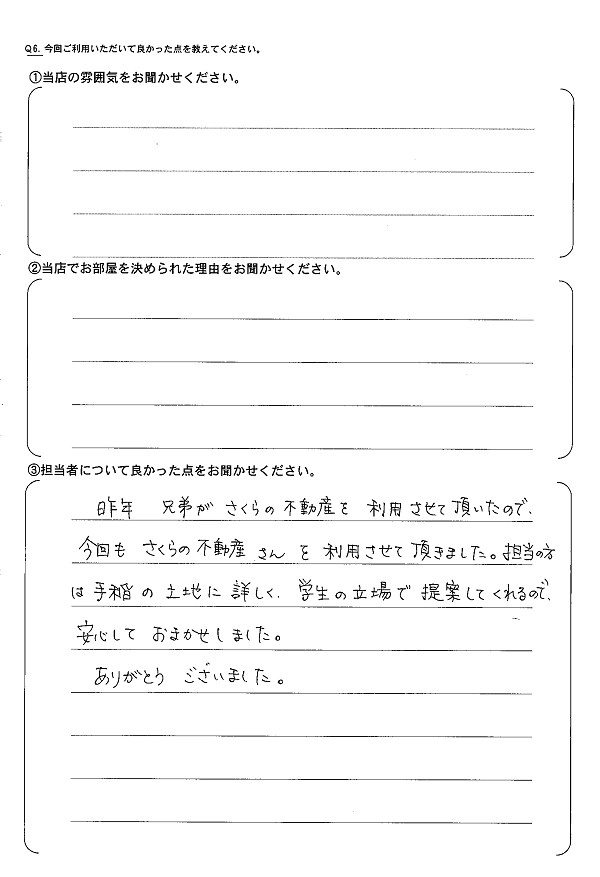 Q6. 今回ご利用いただいて良かった点を教えてください。
①当店の雰囲気をお聞かせください。
②当店でお部屋を決められた理由をお聞かせください。
③担当者について良かった点をお聞かせください。
昨年 兄弟が さくらの不動産を 利用させて頂いたので、
今回も さくらの不動産さん を 利用させて頂きました。担当の方
は手稲の土地に詳しく、学生の立場で提案してくれるので、
安心して おまかせしました。
ありがとう ございました。